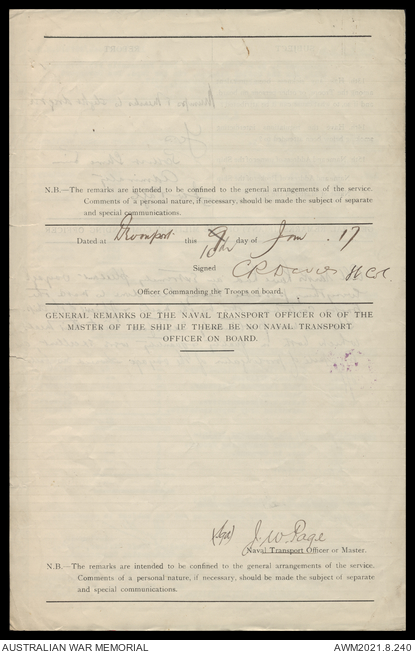 N.B.—The remarks are intended to be confined to the general arrangements of the service.
Comments of a personal nature, if necessary, should be made the subject of separate
and special communications.
Dated at Devonport this 10th day of Jan. 17
Signed
Officer Commanding the Troops on board.
GENERAL REMARKS OF THE NAVAL TRANSPORT OFFICER OR OF THE
MASTER OF THE SHIP IF THERE BE NO NAVAL TRANSPORT
OFFICER ON BOARD.
(Sgd) J. W. Page
Naval Transport Officer or Master.
N.B.—The remarks are intended to be confined to the general arrangements of the service.
Comments of a personal nature, if necessary, should be made the subject of separate
and special communications.
AUSTRALIAN WAR MEMORIAL
AWM2021.8.240